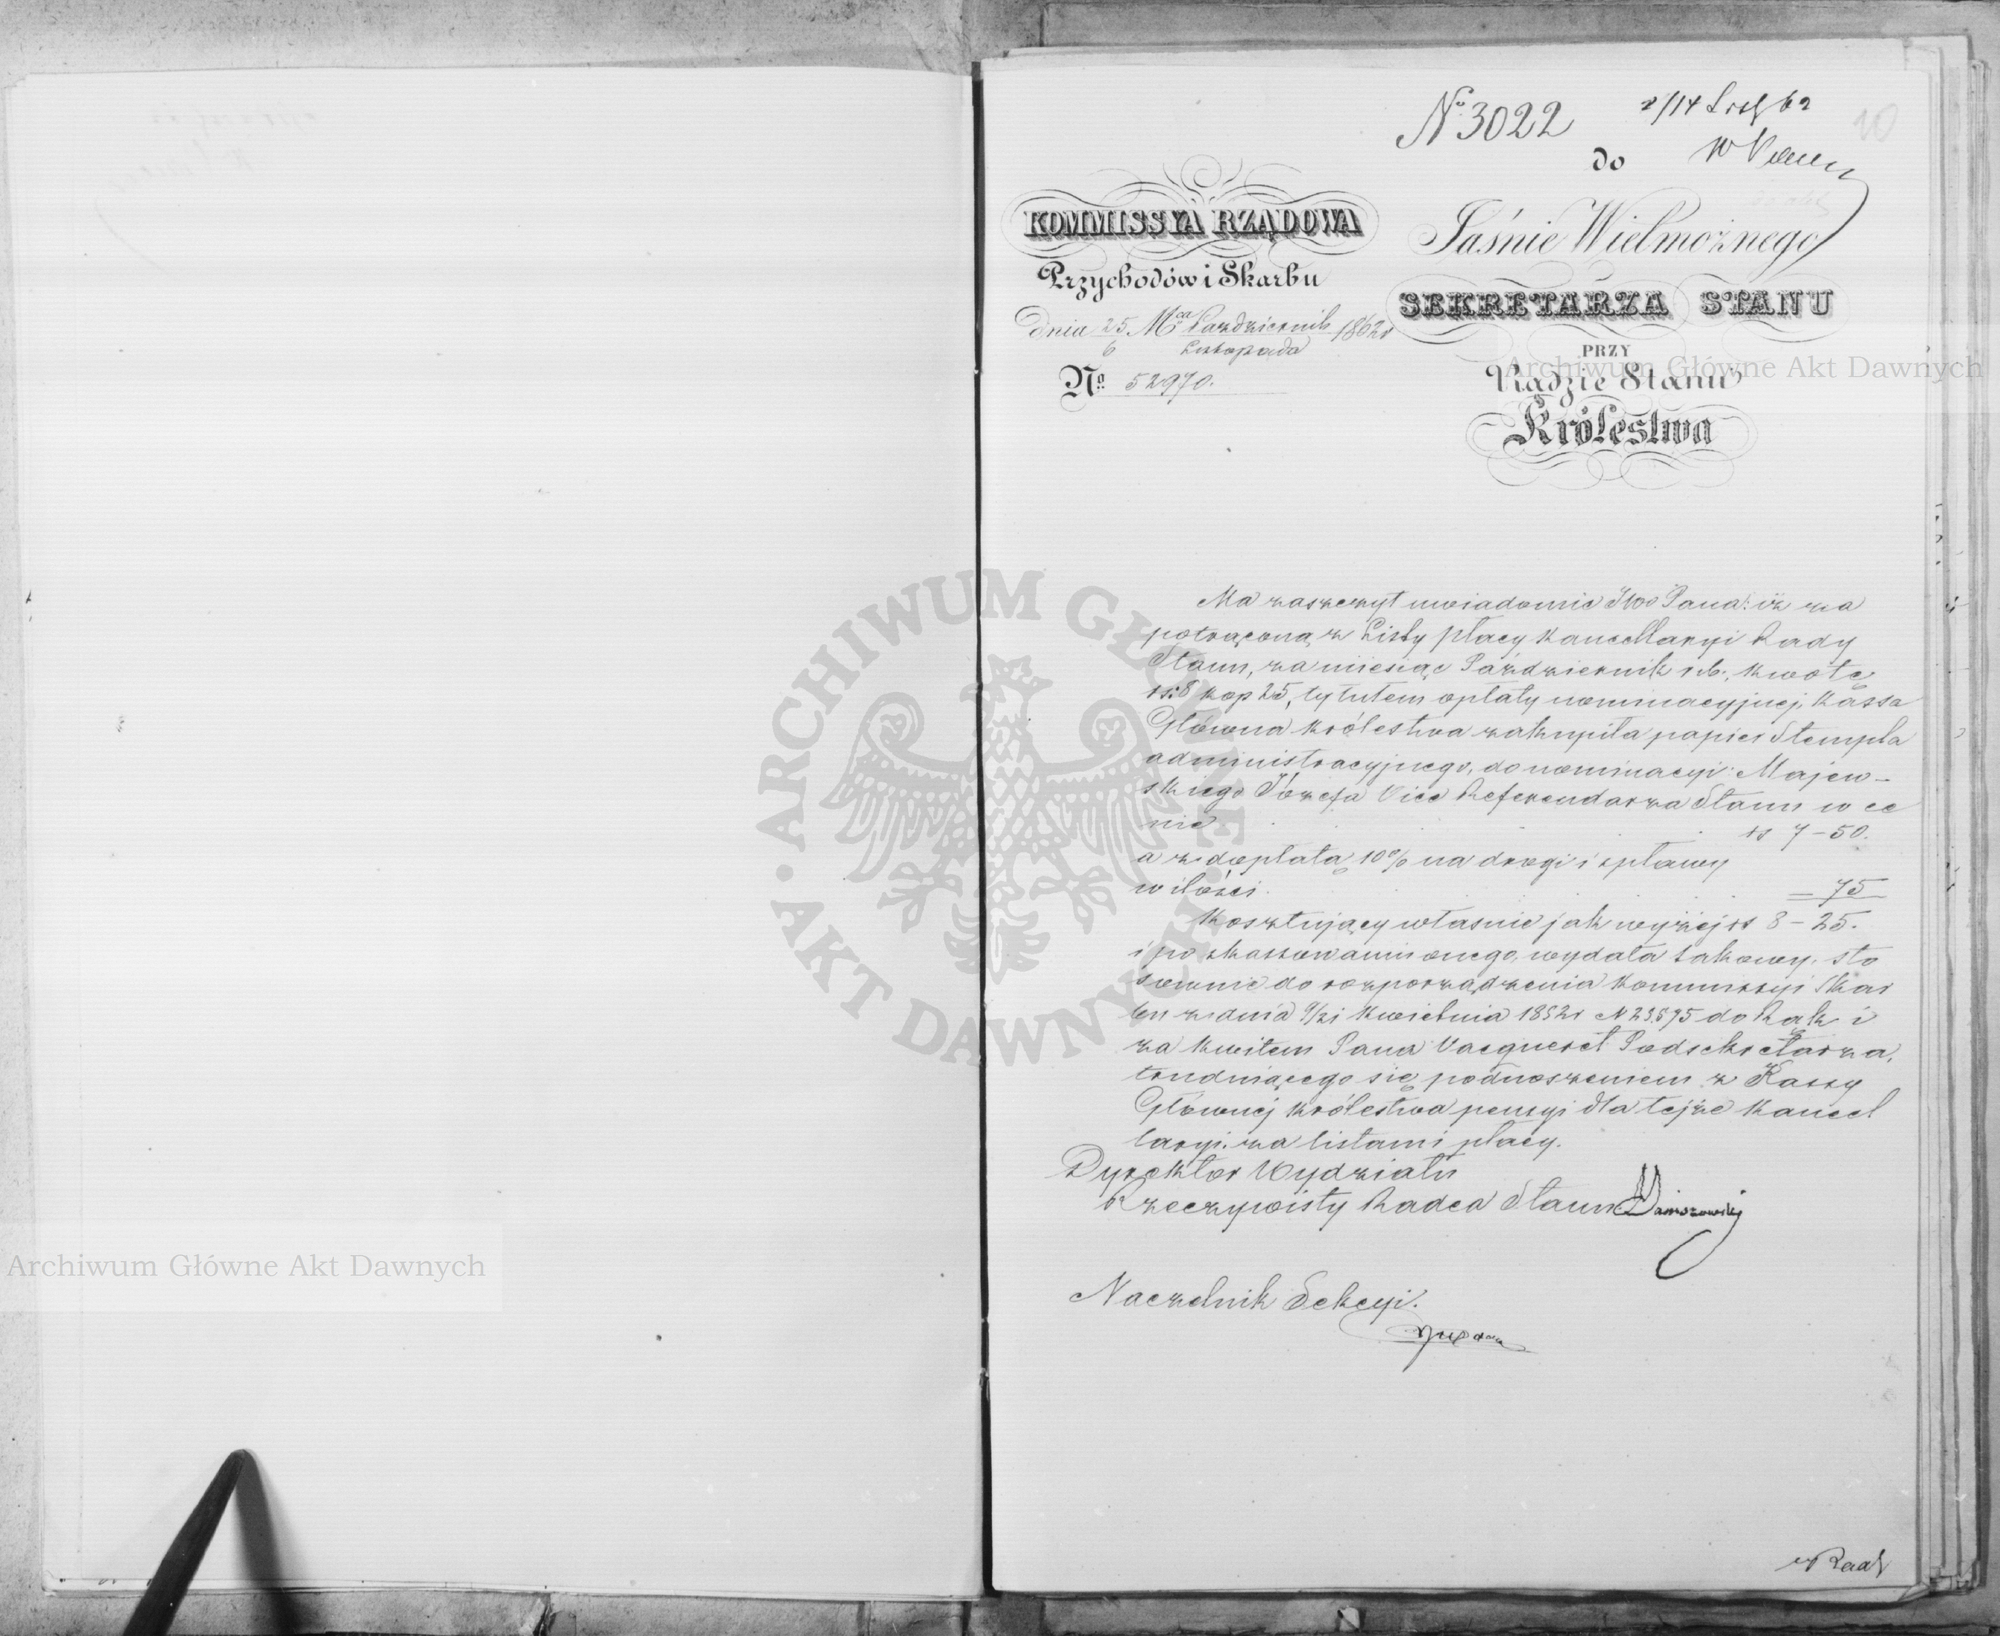 No 3022
2/14 List 62
10
do
KOMMISSYA RZĄDOWA
Przychodów i Skarbu
dnia 25/6 Mca Październik/Listopada 1862 r
No 52970.
Jaśnie Wielmożnego
SEKRETARZA STANU
PRZY
Radzie Stanu
Królestwa
Ma zaszczyt uwiadomić JWo Pana: iż za
potrąconą z Listy płacy Kancellaryi Rady
Stanu, za miesiąc Październik r.b., kwotę
rs: 8 kop 25, tytułem opłaty nominacyjnej, Kassa
Główna Królestwa zakupiła papier Stempla
administracyjnego, do nominacyi: Majew-
skiego Józefa Vice Referendarza Stanu w ce
nie . . . . rs 7-50.
a z dopłatą 10% na drogi i spławy
w ilości . . . = 75
Kosztujący właśnie jak wyżej rs 8-25.
i po skassowaniu onego, wydała takowy, sto
sownie do rozporządzenia Kommissyi Skar
bu z dnia 9/21 Kwietnia 1852 r N 23,595 do Rąk i
za kwitem Pana Vacqueret Podsekretarza,
trudniącego się podnoszeniem z Kassy
Głównej Królestwa pensyi dla tejże Kancel
laryi, za listami płacy.
Dyrektor Wydziału
Rzeczywisty Radca Stanu
Naczelnik Sekcyi.
Archiwum Główne Akt Dawnych
Archiwum Główne Akt Dawnych
ARCHIWUM GŁÓWNE · AKT DAWNYCH ·